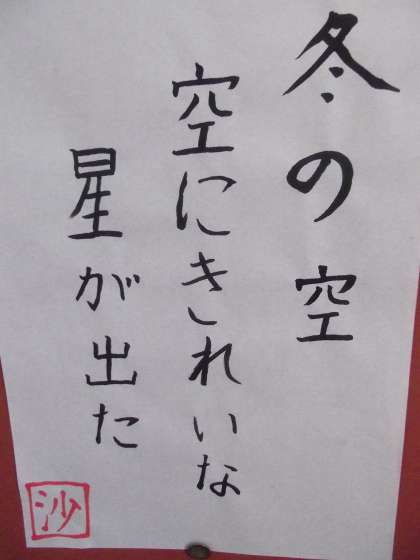 冬の空
空にきれいな
星が出た
沙